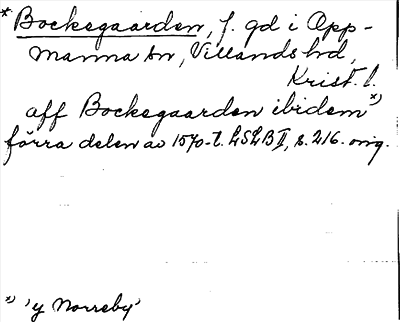 * Bockegaarden, f. gd i Opp-
manna sn, Villands hd,
Krist. l.
aff Bockegaarden ibidem *)
förra delen av 1570-t. LSLB II, s. 216. orig.
*) 'y Norreby'